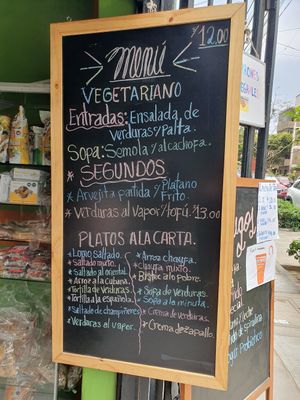 S/12.00
Menú
VEGETARIANO
Entradas: Ensalada de
Verduras y Palta.
Sopa: Sémola y alcachofa.
* SEGUNDOS
* Arvejita partida y Plátano
Frito.
* Verduras al Vapor y Tofú. S/13.00
PLATOS A LA CARTA.
* Lomo saltado
* Saltado mixto.
* Saltado al oriental.
* Arroz a la Cubana
* Tortilla de Verduras.
* Tortilla a la española.
* Saltado de champiñones
* Verduras al vapor.
* Arroz chaufa.
* Chaufa mixto.
* Bistec a lo pobre.
* Sopa de verduras.
* Sopa a la minuta.
* Crema de verduras.
* Crema de zapallo.